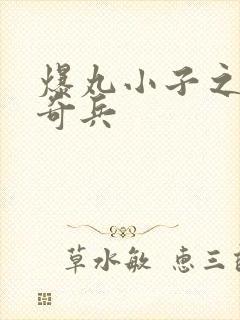 爆丸小子之
奇兵
草水敏 恵三